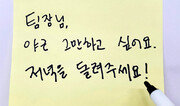 팀장님,
야근 그만하고 싶어요.
저녁을 돌려주세요!